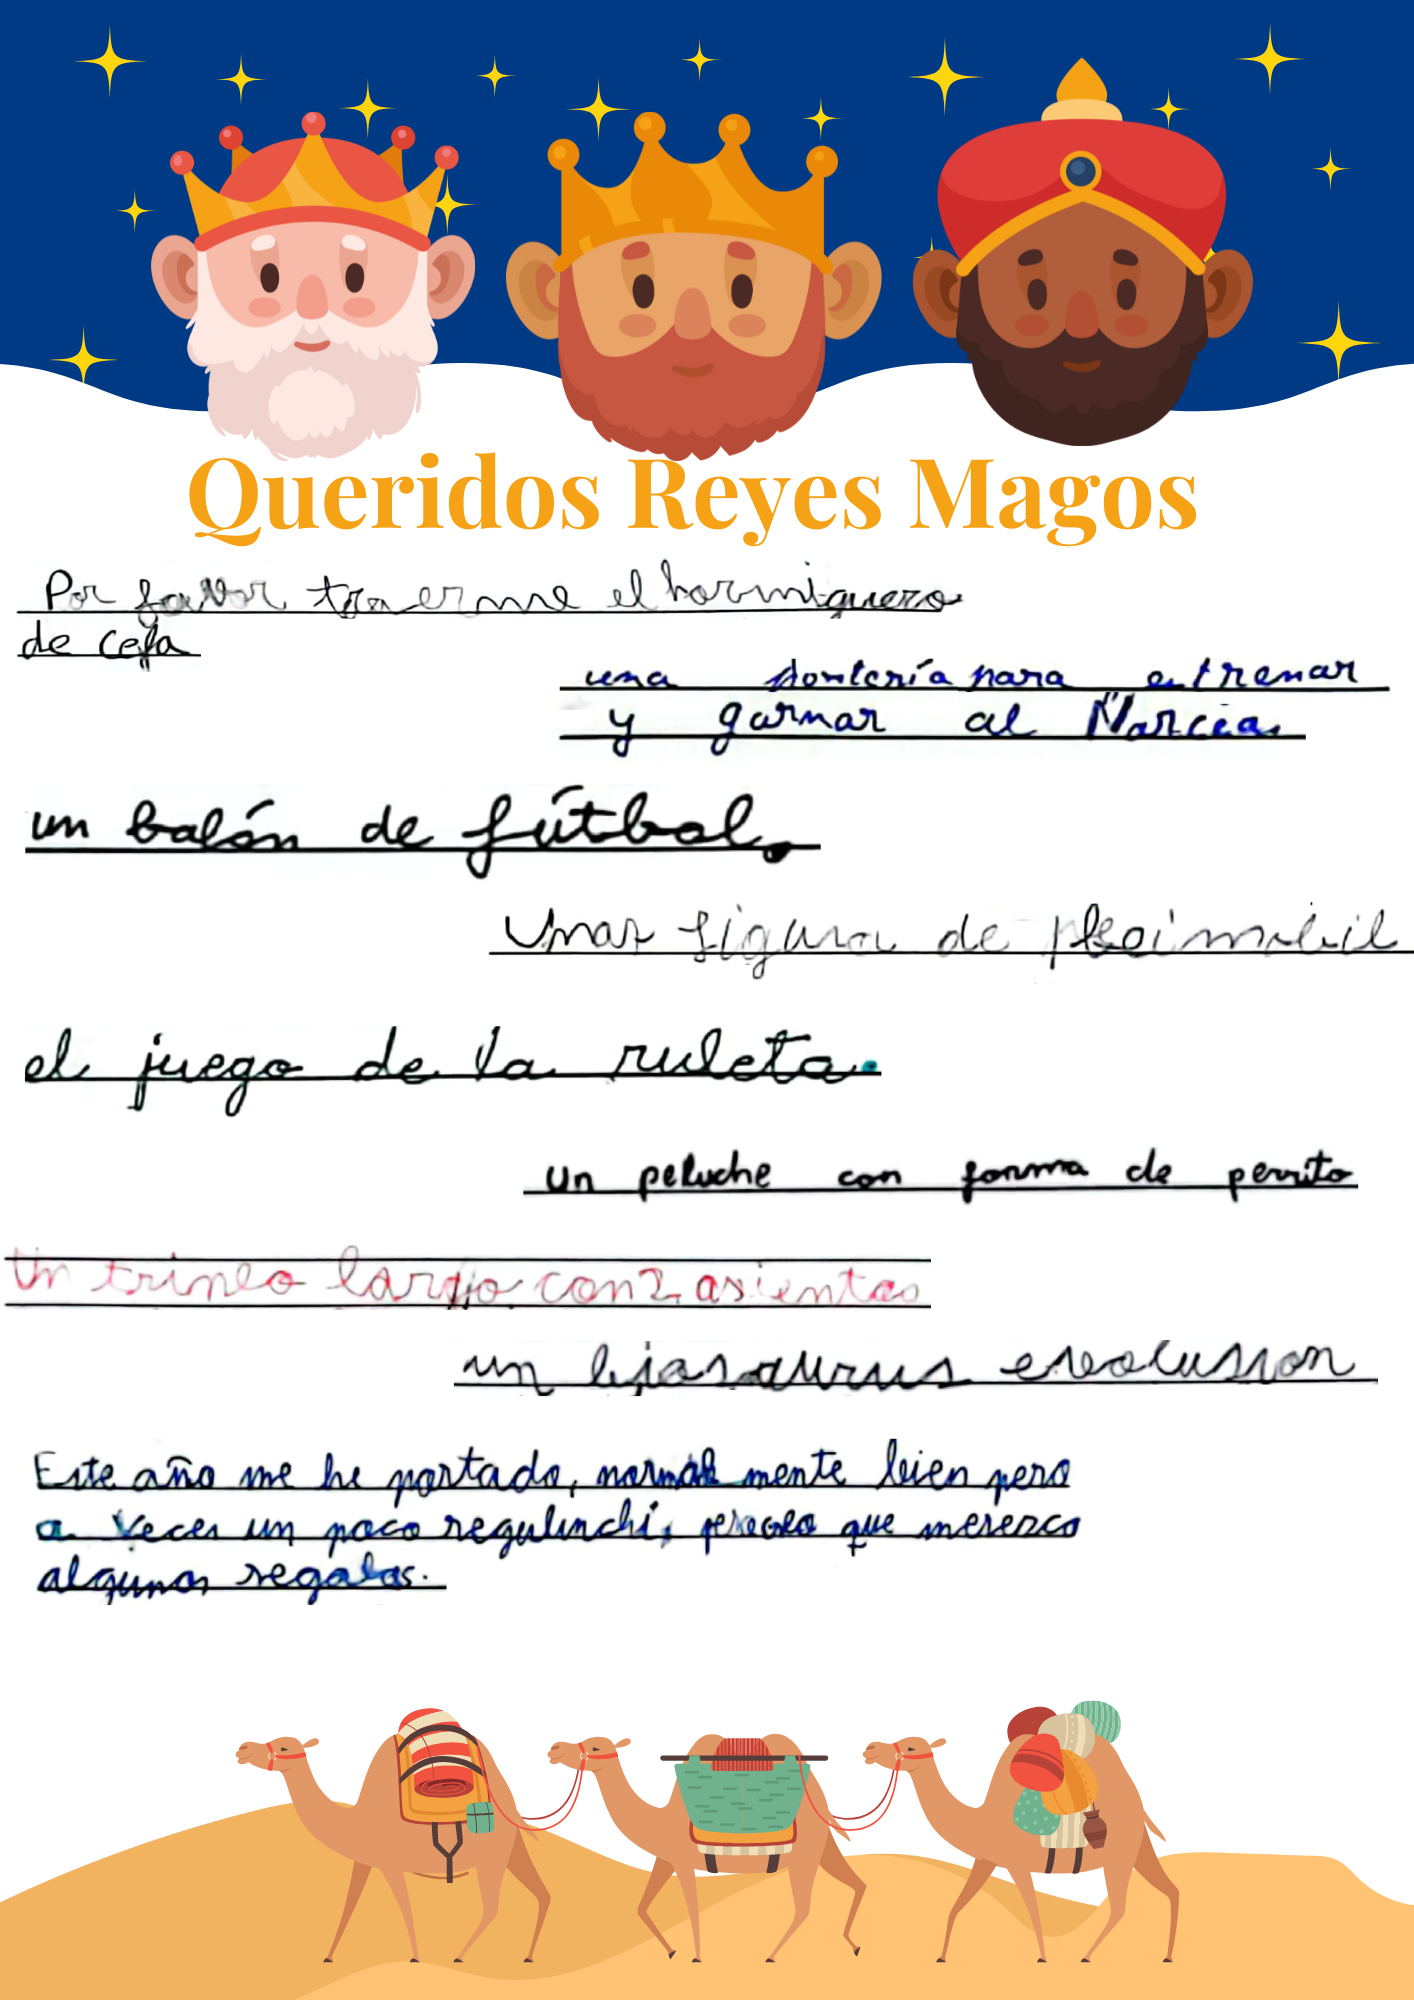 Queridos Reyes Magos
Por favor traerme el hormiguero
de cefa
una portería para entrenar
y garnar al Marcia
un balón de fútbol.
Unas figura de pleimobil
el juego de la ruleta.
un peluche con forma de perrito
Un trineo largo con 2 asientos
un bjasaurus evolussion
Este año me he portado, normal mente bien pero
a veces un poco regulinchi, pero creo que merezco
algunos regalos.